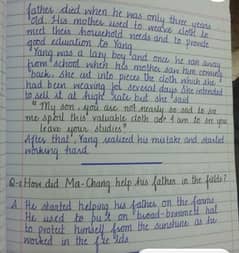 father died when he was only three years
old. His mother used to weave cloth to
meet their household needs and to provide
good education to Yang.
Yang was a lazy boy and once he ran away
from school when his mother saw him coming
back. She cut into pieces the cloth which she
had been weaving for several days. She intended
to sell it at high rate but she said
"My son, you are not nearly so sad to see
me spoil this valuable cloth as I am to see you
leave your studies".
After that, Yang realised his mistake and started
working hard.
Q-2 How did Ma-Chang help his father in the fields?
A He started helping his father on the farms.
He used to put on broad-brimmed hat
to protect himself from the sunshine as he
worked in the fields